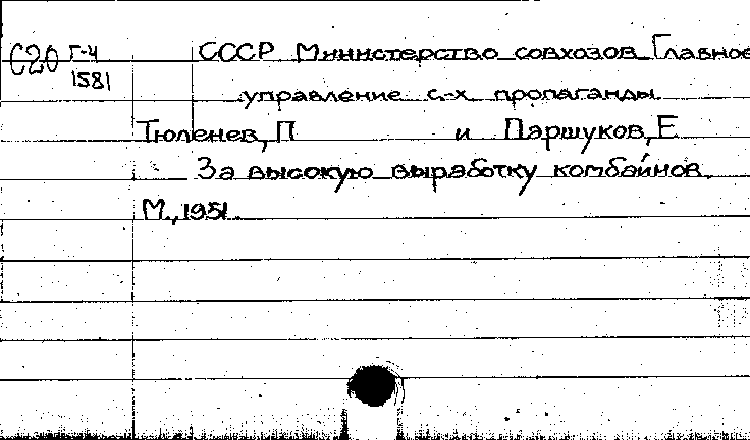 С20 Г-4
1581
СССР Министерство совхозов Главное
управление с.-х пропаганды
Тюленев, П и Паршуков, Е
За высокую выработку комбайнов.
М., 1951.